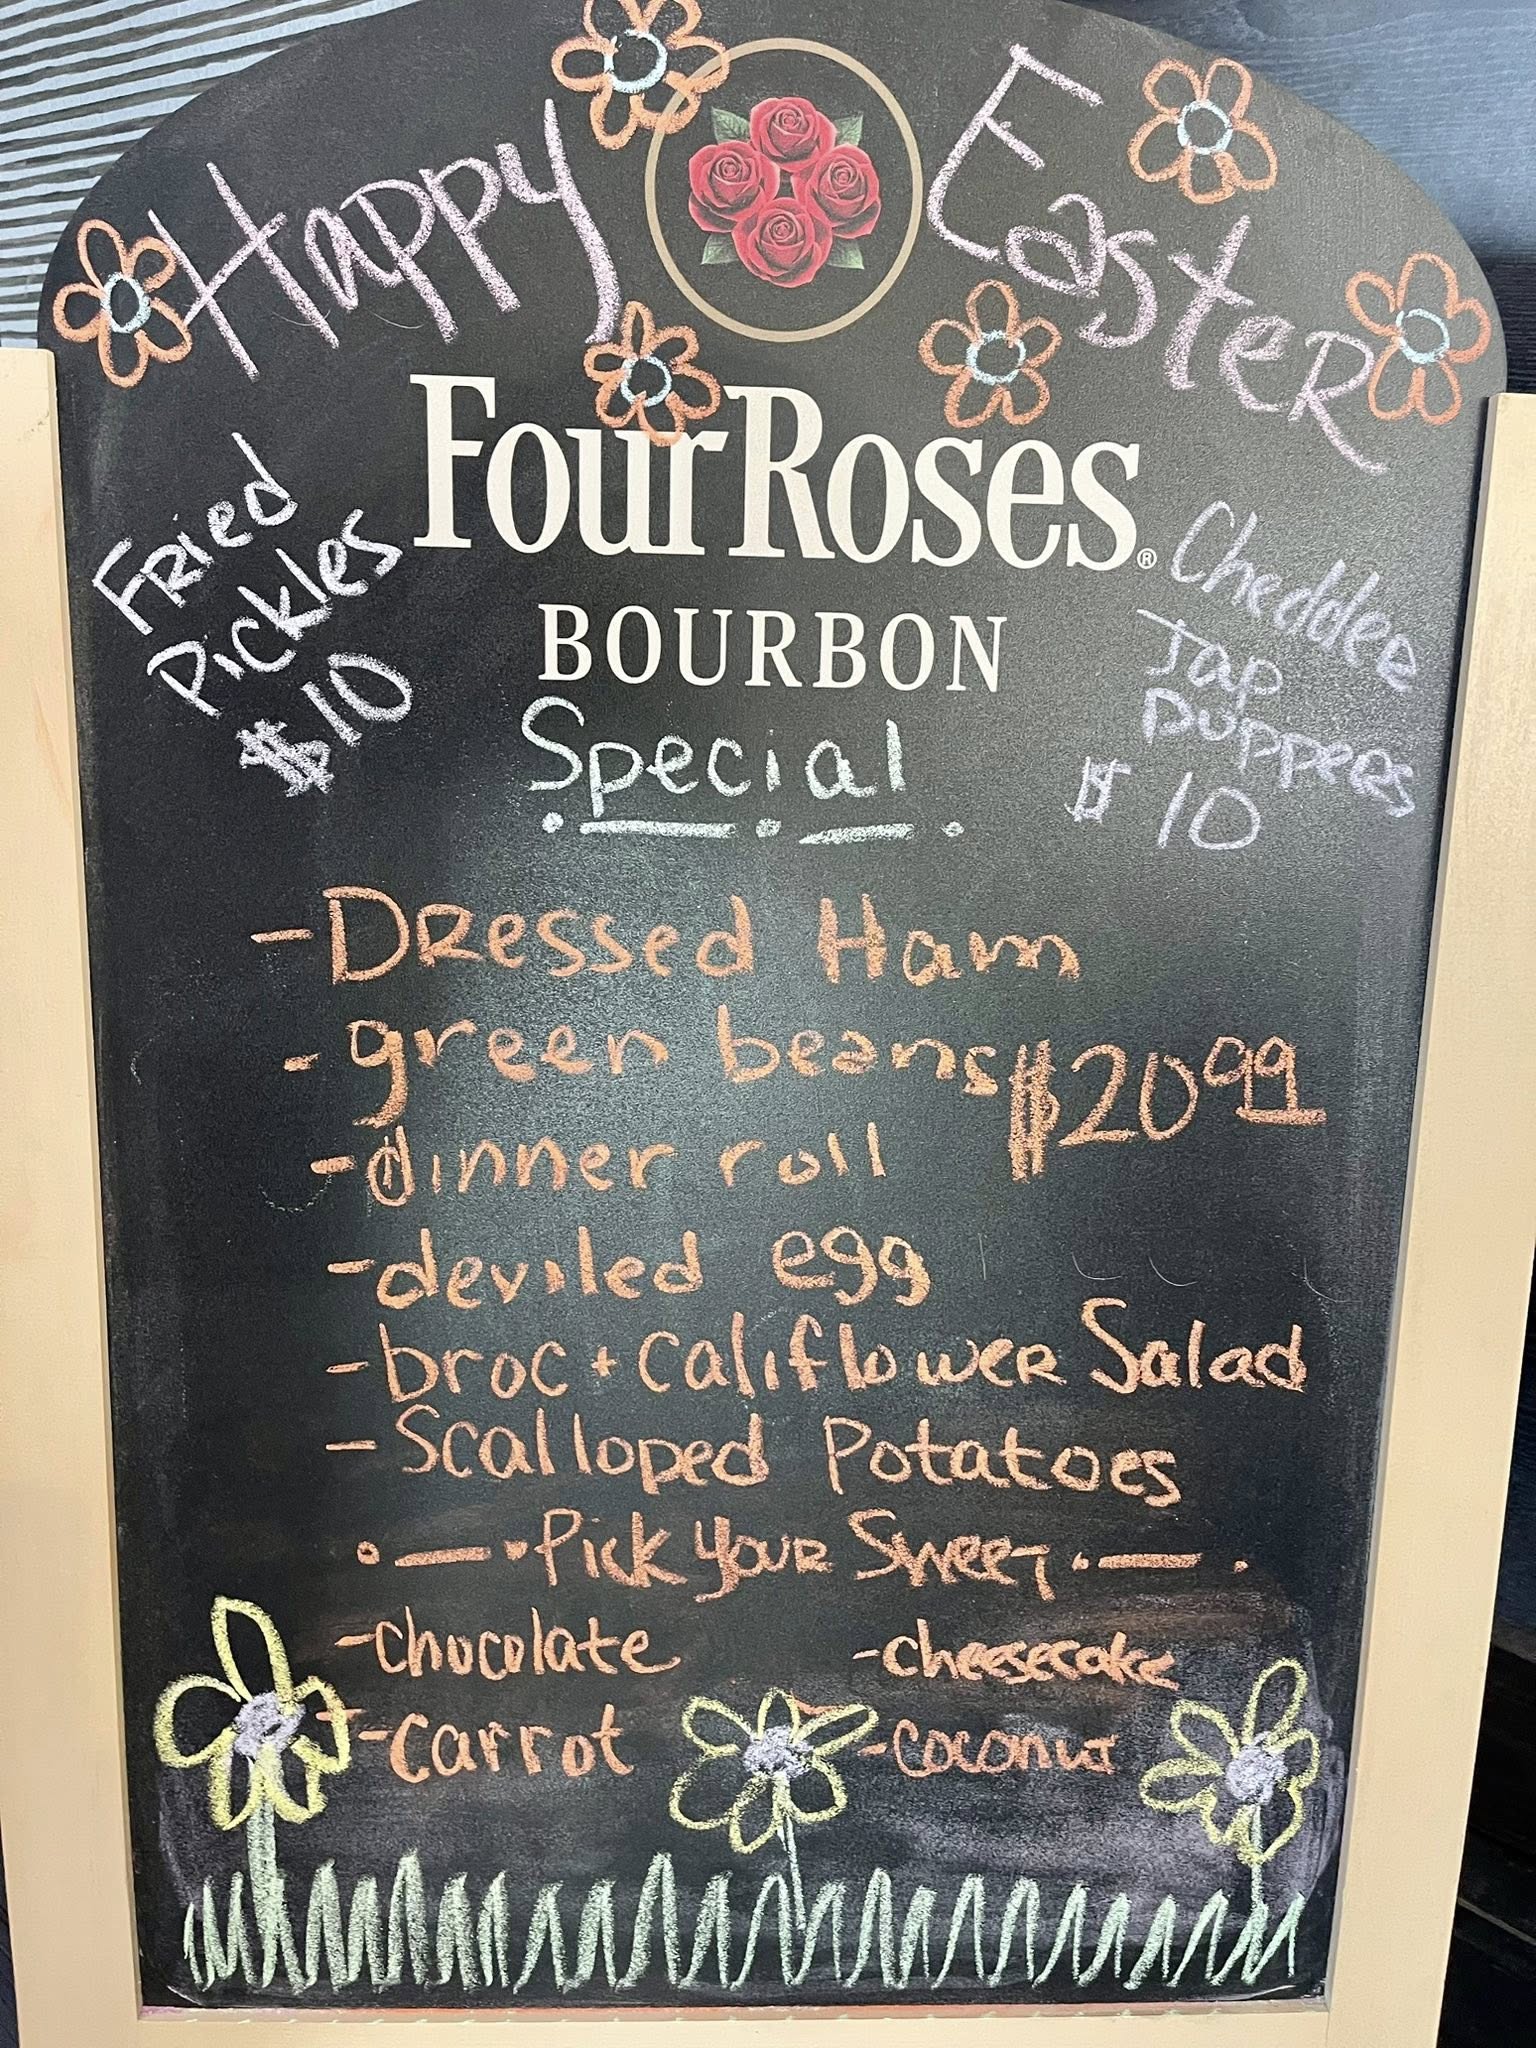 Happy Easter
Four Roses®
BOURBON
Fried
Pickles
$10
Cheddar
Jap
Poppers
$10
Special
- Dressed Ham
- green beans $20.99
- dinner roll
- deviled egg
- broc + califlower Salad
- Scalloped Potatoes
Pick your Sweet
- chocolate
- cheesecake
- carrot
- coconut